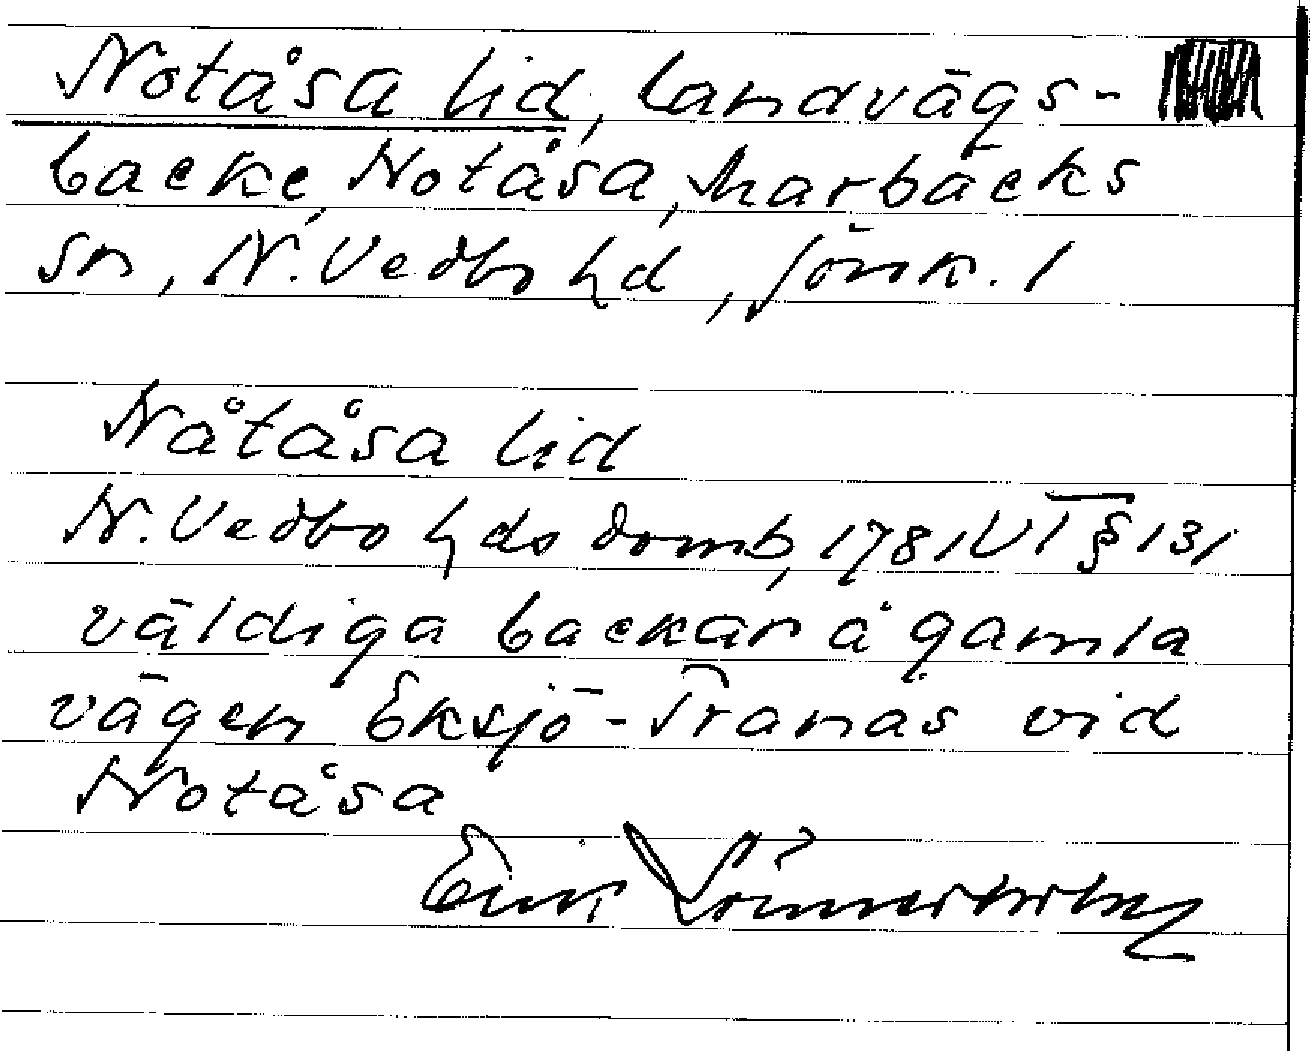 Notåsa lid, landvägs-
backe, Notåsa, Marbäcks
sn, N. Vedbo hd, Jönk. l
Nåtåsa lid
N. Vedbo hds domb, 1781 VT § 131
väldiga backar å gamla
vägen Eksjö - Tranås vid
Notåsa
Erik